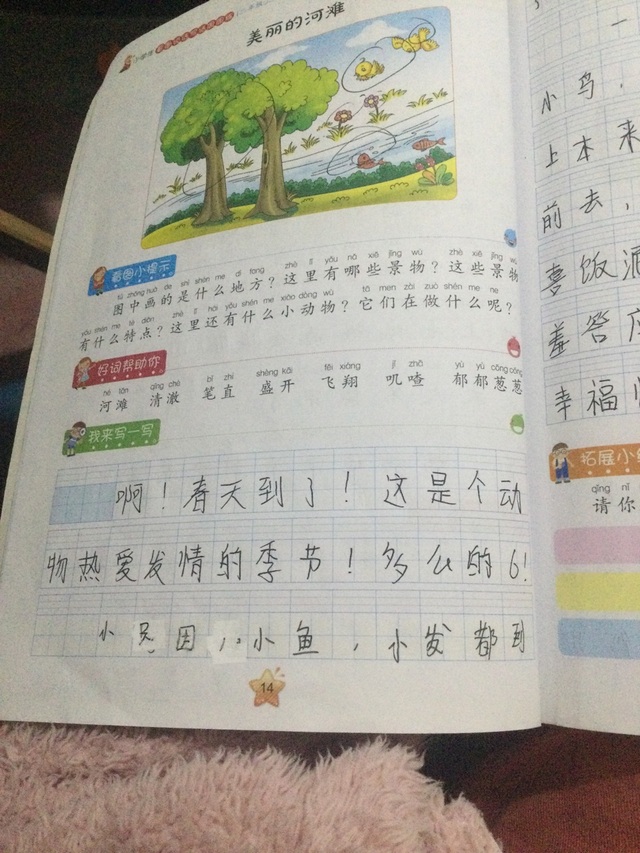 美丽的河滩
看图小提示
tú zhōng huà de shì shén me dì fang zhè lǐ yǒu nǎ xiē jǐng wù zhè xiē jǐng wù
图中画的是什么地方？这里有哪些景物？这些景物
yǒu shén me tè diǎn zhè lǐ hái yǒu shén me xiǎo dòng wù tā men zài zuò shén me ne
有什么特点？这里还有什么小动物？它们在做什么呢？
好词帮助你
hé tān qīng chè bǐ zhí shèng kāi fēi xiáng jī zhā yù yù cōng cōng
河滩 清澈 笔直 盛开 飞翔 叽喳 郁郁葱葱
我来写一写
啊！春天到了！这是个动
物热爱发情的季节！多么的6！
小 因 小鱼，小发都到
14
一
小鸟，
上本来
前去，
喜饭酒
羞答
幸福
拓展小
qǐng nǐ
请你